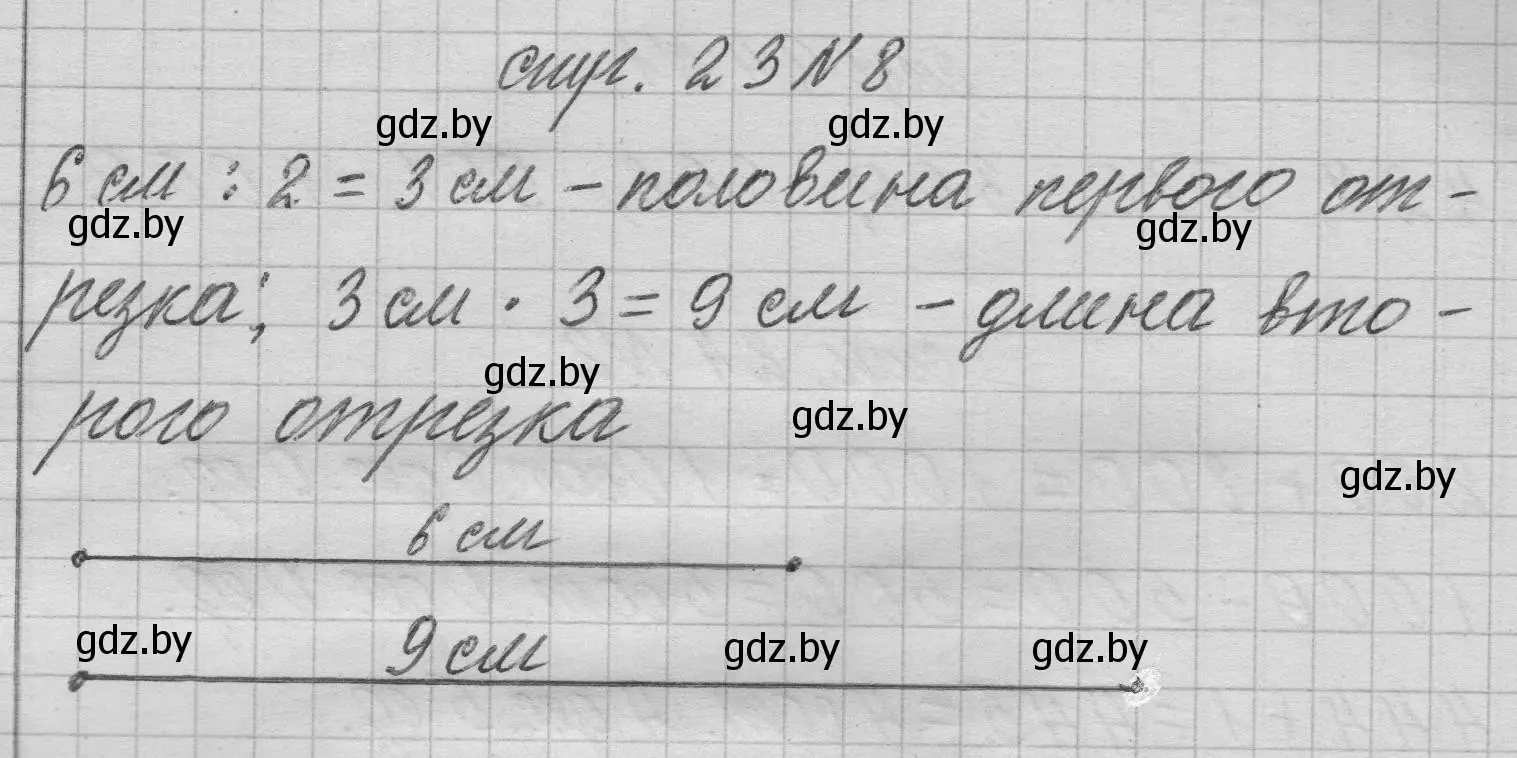 стр. 23 N 8
gdz.by gdz.by
6 см : 2 = 3 см – половина первого от-
gdz.by gdz.by
резка; 3 см · 3 = 9 см – длина вто-
gdz.by
рого отрезка
gdz.by
gdz.by
6 см
gdz.by 9 см gdz.by gdz.by